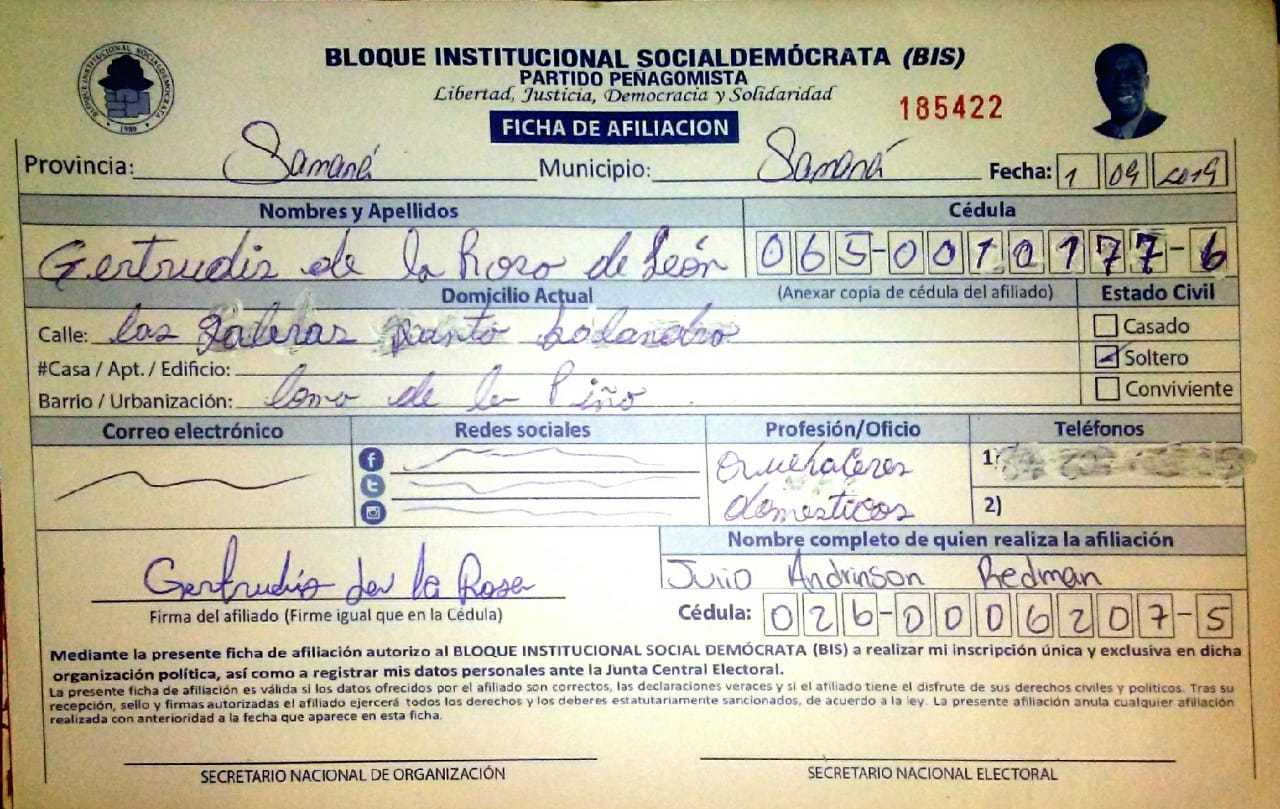 BLOQUE INSTITUCIONAL SOCIALDEMÓCRATA (BIS)
PARTIDO PEÑAGOMISTA
Libertad, Justicia, Democracia y Solidaridad
185422
FICHA DE AFILIACION
BLOQUE INSTITUCIONAL SOCIALDEMOCRATA
1989
Provincia: Samaná Municipio: Samaná Fecha: 1 09 2019
Nombres y Apellidos Cédula
Gertrudis de la Rosa de León 065-0010177-6
Domicilio Actual (Anexar copia de cédula del afiliado) Estado Civil
Calle: las galeras punto Casado
#Casa / Apt. / Edificio: Soltero
Barrio / Urbanización: loma de la Piña Conviviente
Correo electrónico Redes sociales Profesión/Oficio Teléfonos
Quehaceres 1)
domésticos 2)
Nombre completo de quien realiza la afiliación
Gertrudis de la Rosa Julio Andrinson Redman
Firma del afiliado (Firme igual que en la Cédula) Cédula: 026-0006207-5
Mediante la presente ficha de afiliación autorizo al BLOQUE INSTITUCIONAL SOCIAL DEMÓCRATA (BIS) a realizar mi inscripción única y exclusiva en dicha
organización política, así como a registrar mis datos personales ante la Junta Central Electoral.
La presente ficha de afiliación es válida si los datos ofrecidos por el afiliado son correctos, las declaraciones veraces y si el afiliado tiene el disfrute de sus derechos civiles y políticos. Tras su
recepción, sello y firmas autorizadas el afiliado ejercerá todos los derechos y los deberes estatutariamente sancionados, de acuerdo a la ley. La presente afiliación anula cualquier afiliación
realizada con anterioridad a la fecha que aparece en esta ficha.
SECRETARIO NACIONAL DE ORGANIZACIÓN SECRETARIO NACIONAL ELECTORAL